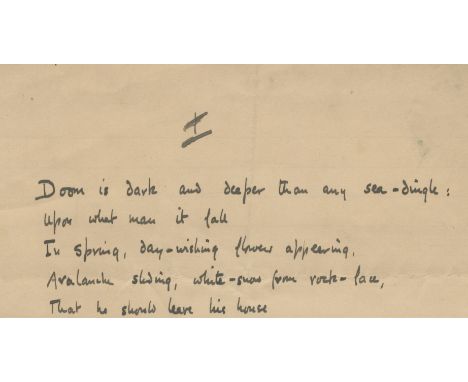 I
Doom is dark and deeper than any sea-dingle:
Upon what man it fall
In spring, day-wishing flowers appearing,
Avalanche sliding, white-snow from rock-face,
That he should leave his house